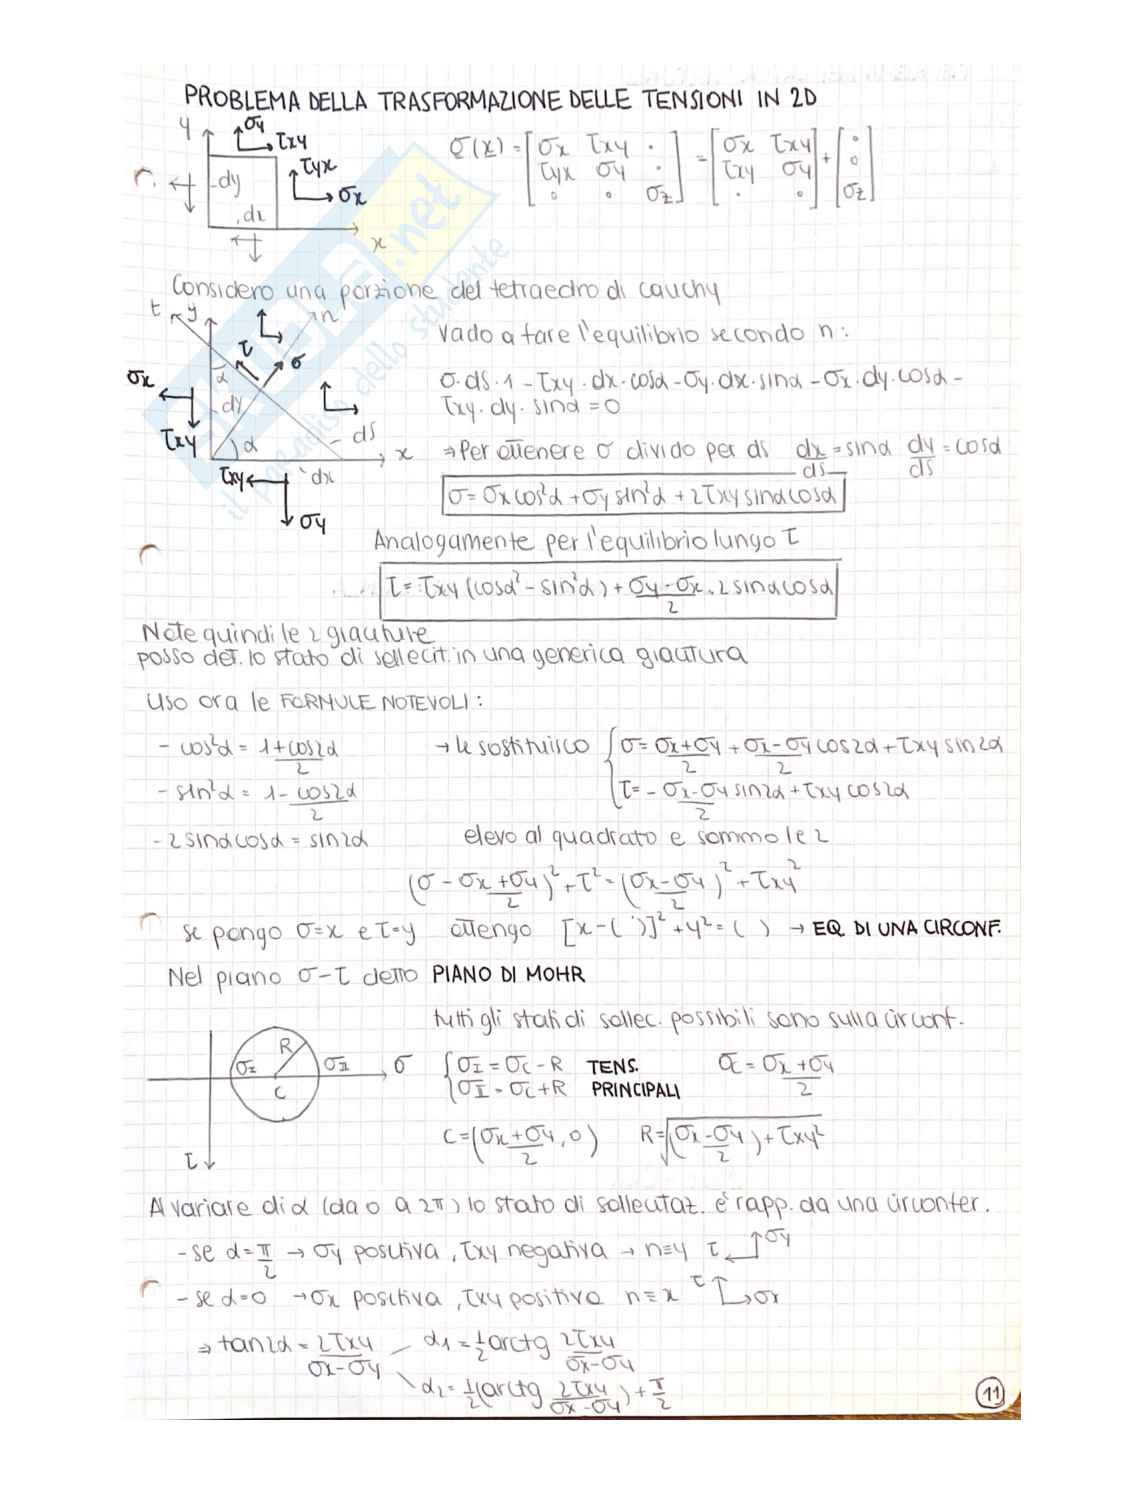 PROBLEMA DELLA TRASFORMAZIONE DELLE TENSIONI IN 2D
y σy τxy τyx σx dy dx x
σ(x) = [σx τxy · ; τyx σy · ; ∘ ∘ σz] = [σx τxy ; τxy σy ; · ∘] + [∘ ; ∘ ; σz]
Considero una porzione del tetraedro di cauchy
t y n τ σ α σx dy τxy α ds x τxy dx σy
vado a fare l'equilibrio secondo n:
σ·ds·1 - τxy·dx·cosα - σy·dx·sinα - σx·dy·cosα -
τxy·dy·sinα = 0
⇒ Per ottenere σ divido per ds dx/ds = sinα dy/ds = cosα
σ = σx cos²α + σy sin²α + 2τxy sinα cosα
Analogamente per l'equilibrio lungo τ
τ = τxy (cosα² - sin²α) + (σy - σx)/2 · 2 sinα cosα
Note quindi le 2 giaciture
posso det. lo stato di sollecit. in una generica giacitura
Uso ora le FORMULE NOTEVOLI:
- cos²α = (1 + cos2α)/2 → le sostituisco { σ = (σx + σy)/2 + (σx - σy)/2 cos2α + τxy sin2α
- sin²α = (1 - cos2α)/2 τ = - (σx - σy)/2 sin2α + τxy cos2α
- 2 sinα cosα = sin2α elevo al quadrato e sommo le 2
(σ - (σx + σy)/2)² + τ² = ((σx - σy)/2)² + τxy²
se pongo σ=x e τ=y ottengo [x-( )]² + y² = ( ) → EQ. DI UNA CIRCONF.
Nel piano σ-τ detto PIANO DI MOHR
tutti gli stati di sollec. possibili sono sulla circonf.
R σI σII σ C τ
{ σI = σc - R TENS. σc = (σx + σy)/2
σII = σc + R PRINCIPALI
C = ((σx + σy)/2, 0) R = √(((σx - σy)/2) + τxy²)
Al variare di α (da 0 a 2π) lo stato di sollecitaz. è rapp. da una circonfer.
- se α = π/2 → σy positiva, τxy negativa → n≡y τ σy
- se α=0 → σx positiva, τxy positiva n≡x τ σx
⇒ tan2α = 2τxy/(σx - σy) α1 = ½ arctg 2τxy/(σx - σy)
α2 = ½(arctg 2τxy/(σx - σy)) + π/2
11
SKUOLA.net
il paradiso dello studente